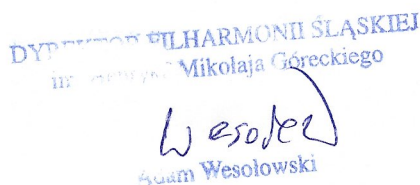 DYREKTOR FILHARMONII ŚLĄSKIEJ
im. Henryka Mikołaja Góreckiego
Adam Wesołowski